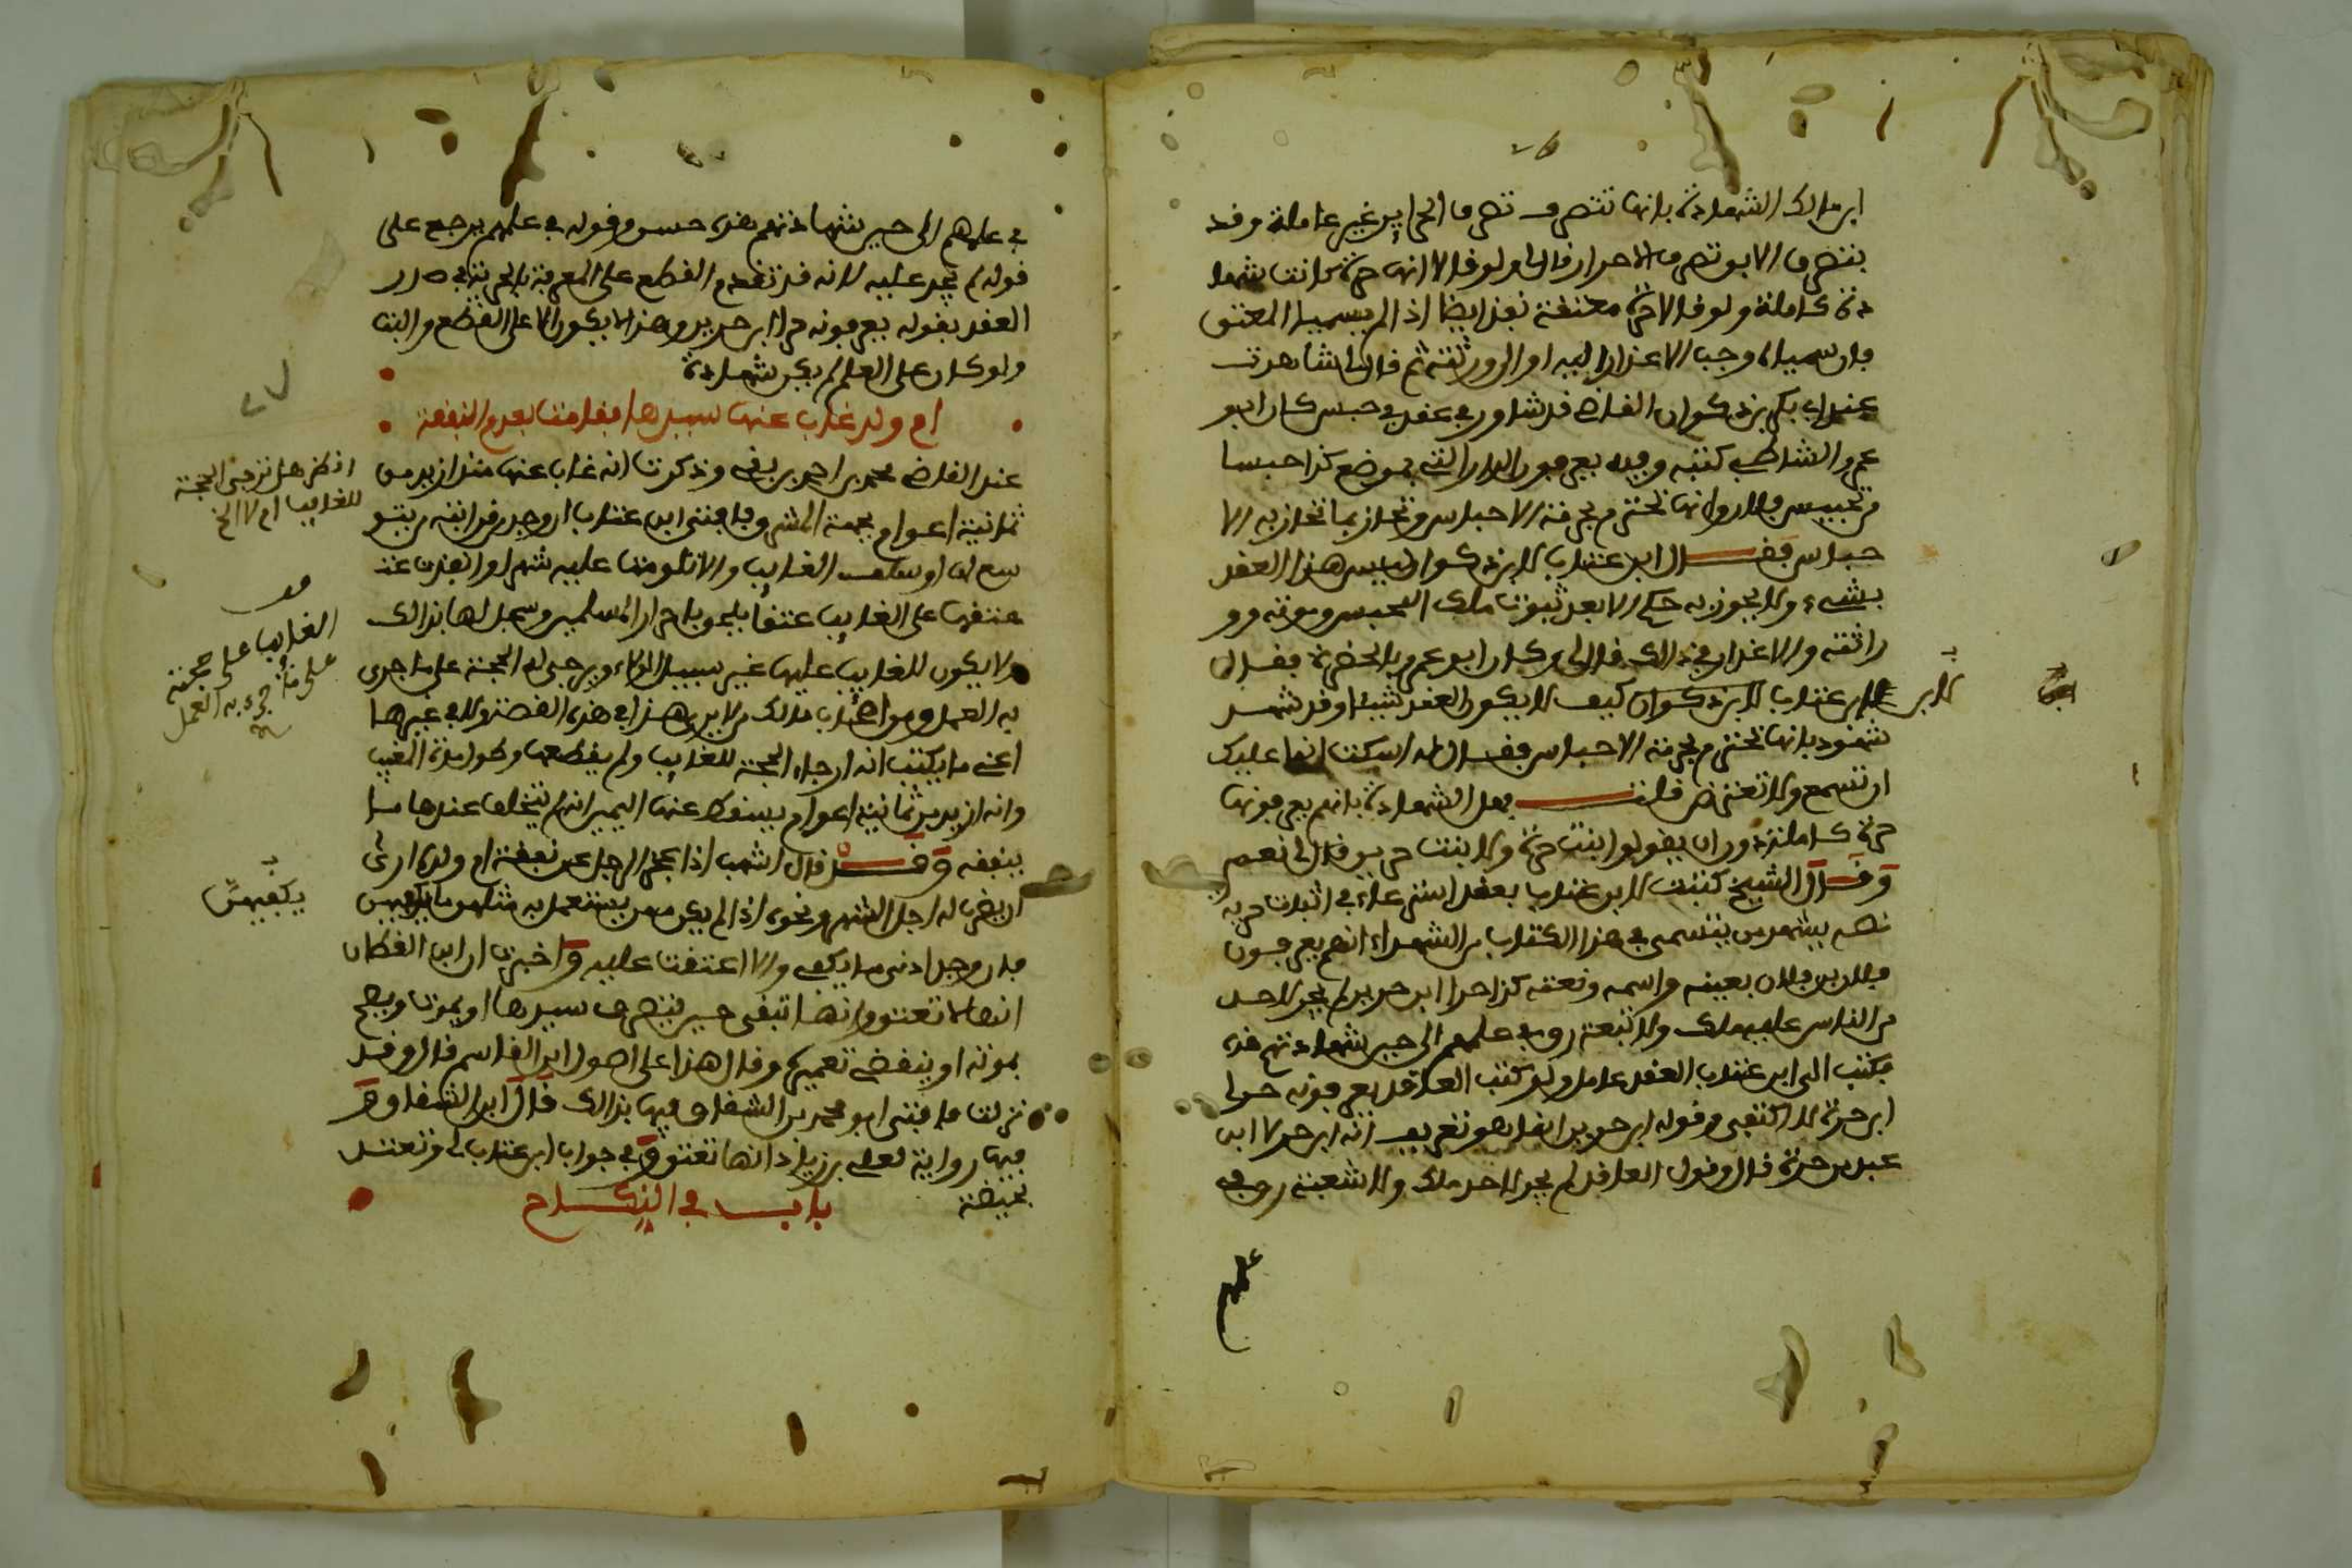 ابن مالك الشهادة بانها تتصرف تصرف الحراير غير عاملة وقد
يتصرف الابو تصرف الاحرار قال ولو قالا انها حرة كانت شها
دة كاملة ولو قالا حرة معتقة نفذ ايضا اذا لم يسميا المعتق
فان سمياه وجب الاعذار اليه او الى ورثته ثم قال لنا شاهدت
عند ابي بكر بن ذكوان القاضي قد شاور في عقد في حبس كان ابو
عمر الشاطبي كتبه وفيه يعرفون الدار التي بموضع كذا حبسا
من تحبيس فلان وانها تحترم بحرمة الاحباس وتحاز بما تحاز به الا
حباس فقال ابن عتاب لابن ذكوان ليس هذا العقد
بشيء ولا يجوز به حكم الا بعد ثبوت ملك المحبس وموته وو
راثته والاعذار في ذلك قال لي وكان ابو عمر بالحضرة فقال
لابن عتاب لابن ذكوان كيف لا يكون العقد شيئا وقد شهد
شهود بانها تحترم بحرمة الاحباس فقال له اسكت انما عليك
ان تسمع ولا تعترض قلت فهل الشهادة بانهم يعرفونها
حرة كاملة دون ان يقولوا بنت حرة ولا بنت حرين قال لي نعم
وقال الشيخ كتبت لابن عتاب بعقد استرعاء في اثبات حرية
نصه يشهد من يتسمى في هذا الكتاب من الشهداء انهم يعرفون
فلان بن فلان بعينه واسمه ونعته كذا حرا ابن حرين لم يجر لاحد
من الناس عليه ملك ولا تبعة رق في علمهم الى حين شهادتهم هذه
فكتب الي ابن عتاب العقد عامل ولو كتب العاقد يعرفونه حرا
ابن حرة لاكتفى وقوله ابن حرين انما هو تعريف انه ابن حر لا ابن
عبد من حرة قال وقول العاقد لم يجر لاحد ملك ولا شعبة رق في
علمهم
في علمهم الى حين شهادتهم هذه حسن وقوله في علمهم يرجع على
قوله لم يجر عليه لانه قد تقدم القطع على المعرفة بالحرية في صدر
العقد بقوله يعرفونه حرا ابن حرين وهذا لا يكون الا على القطع والبت
ولو كان على العلم لم يكن شهادة
ام ولد غاب عنها سيدها فقامت بعدم النفقة
عند القاضي محمد بن احمد بن بقي وذكرت انه غاب عنها منذ ازيد من
ثمانية اعوام بجهة المشرق فافتى ابن عتاب ان وجد من قرابته من يتو
سع لها او سلف الغايب والا تلومت عليه شهرا وانفذت عند
عتقها على الغايب عتقا يلحق باحرار المسلمين وسجل لها بذلك
ولا يكون للغايب عليها غير سبيل الولاء ويرجى له الحجة على ما جرى
به العمل ومن اصحاب مالك من لا يرى هذا في هذه القصة ولا في غيرها
اعني ما يكتب انه ارجاء الحجة للغايب ولم يقطعها وطول مدة المغيب
وانه ازيد من ثمانية اعوام يسقط عنها اليمين انه لم يتخلف عندها ما
ينفقه وقد قال اشهب اذا عجز الرجل عن نفقة ام ولده ارى
ان يضرب له اجل الشهر ونحوه اذا لم يكن ممن يستعمل به مثلهن ما يكفيهن
فان وجد ادنى ما يكفي والا اعتقت عليه واخبرت ان ابن القطان
انها لا تعتق وانها تبقى حتى يتصرف سيدها او يموت ويصح
بموته او ينقضي تعميره وقال هذا على اصول ابن القاسم قال وقد
نزلت فافتى ابو محمد بن الشقاق فيها بذلك قال ابن الشقاق وهي
فيها رواية لعلي بن زياد انها تعتق وفي جواب ابن عتاب لي وتعتد
بحيضة
باب في النكاح
انظر هل ترجى الحجة
للغايب ام لا الخ
قف
الغايب على حجته
على ما جرى به العمل
يكفيهن